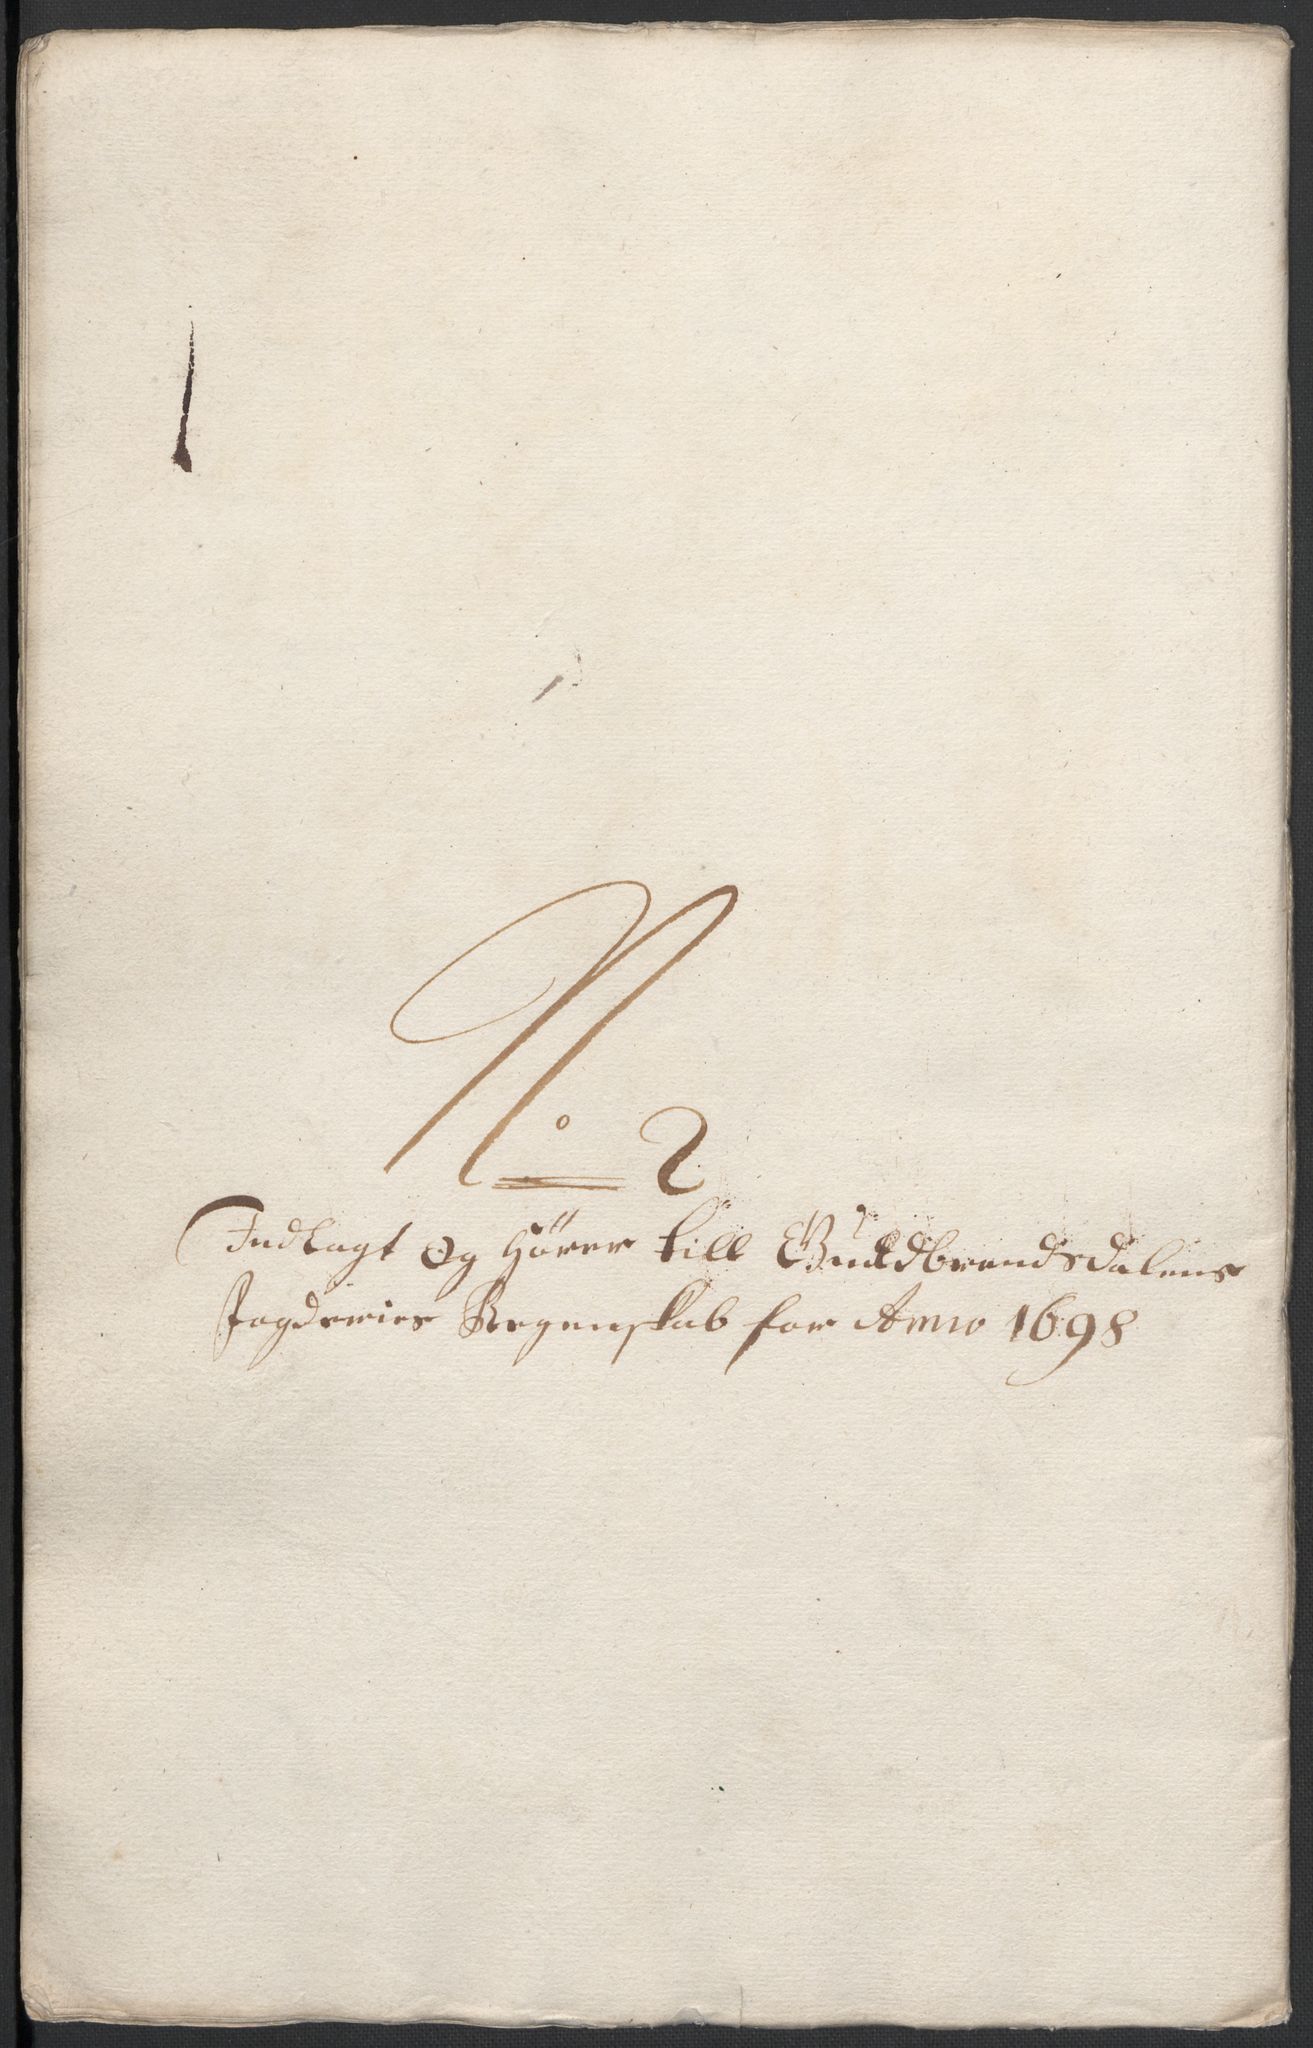 No 2
Indlagt Og hörer till Guldbrandsdalens
fogderies Regenskab for Anno 1698